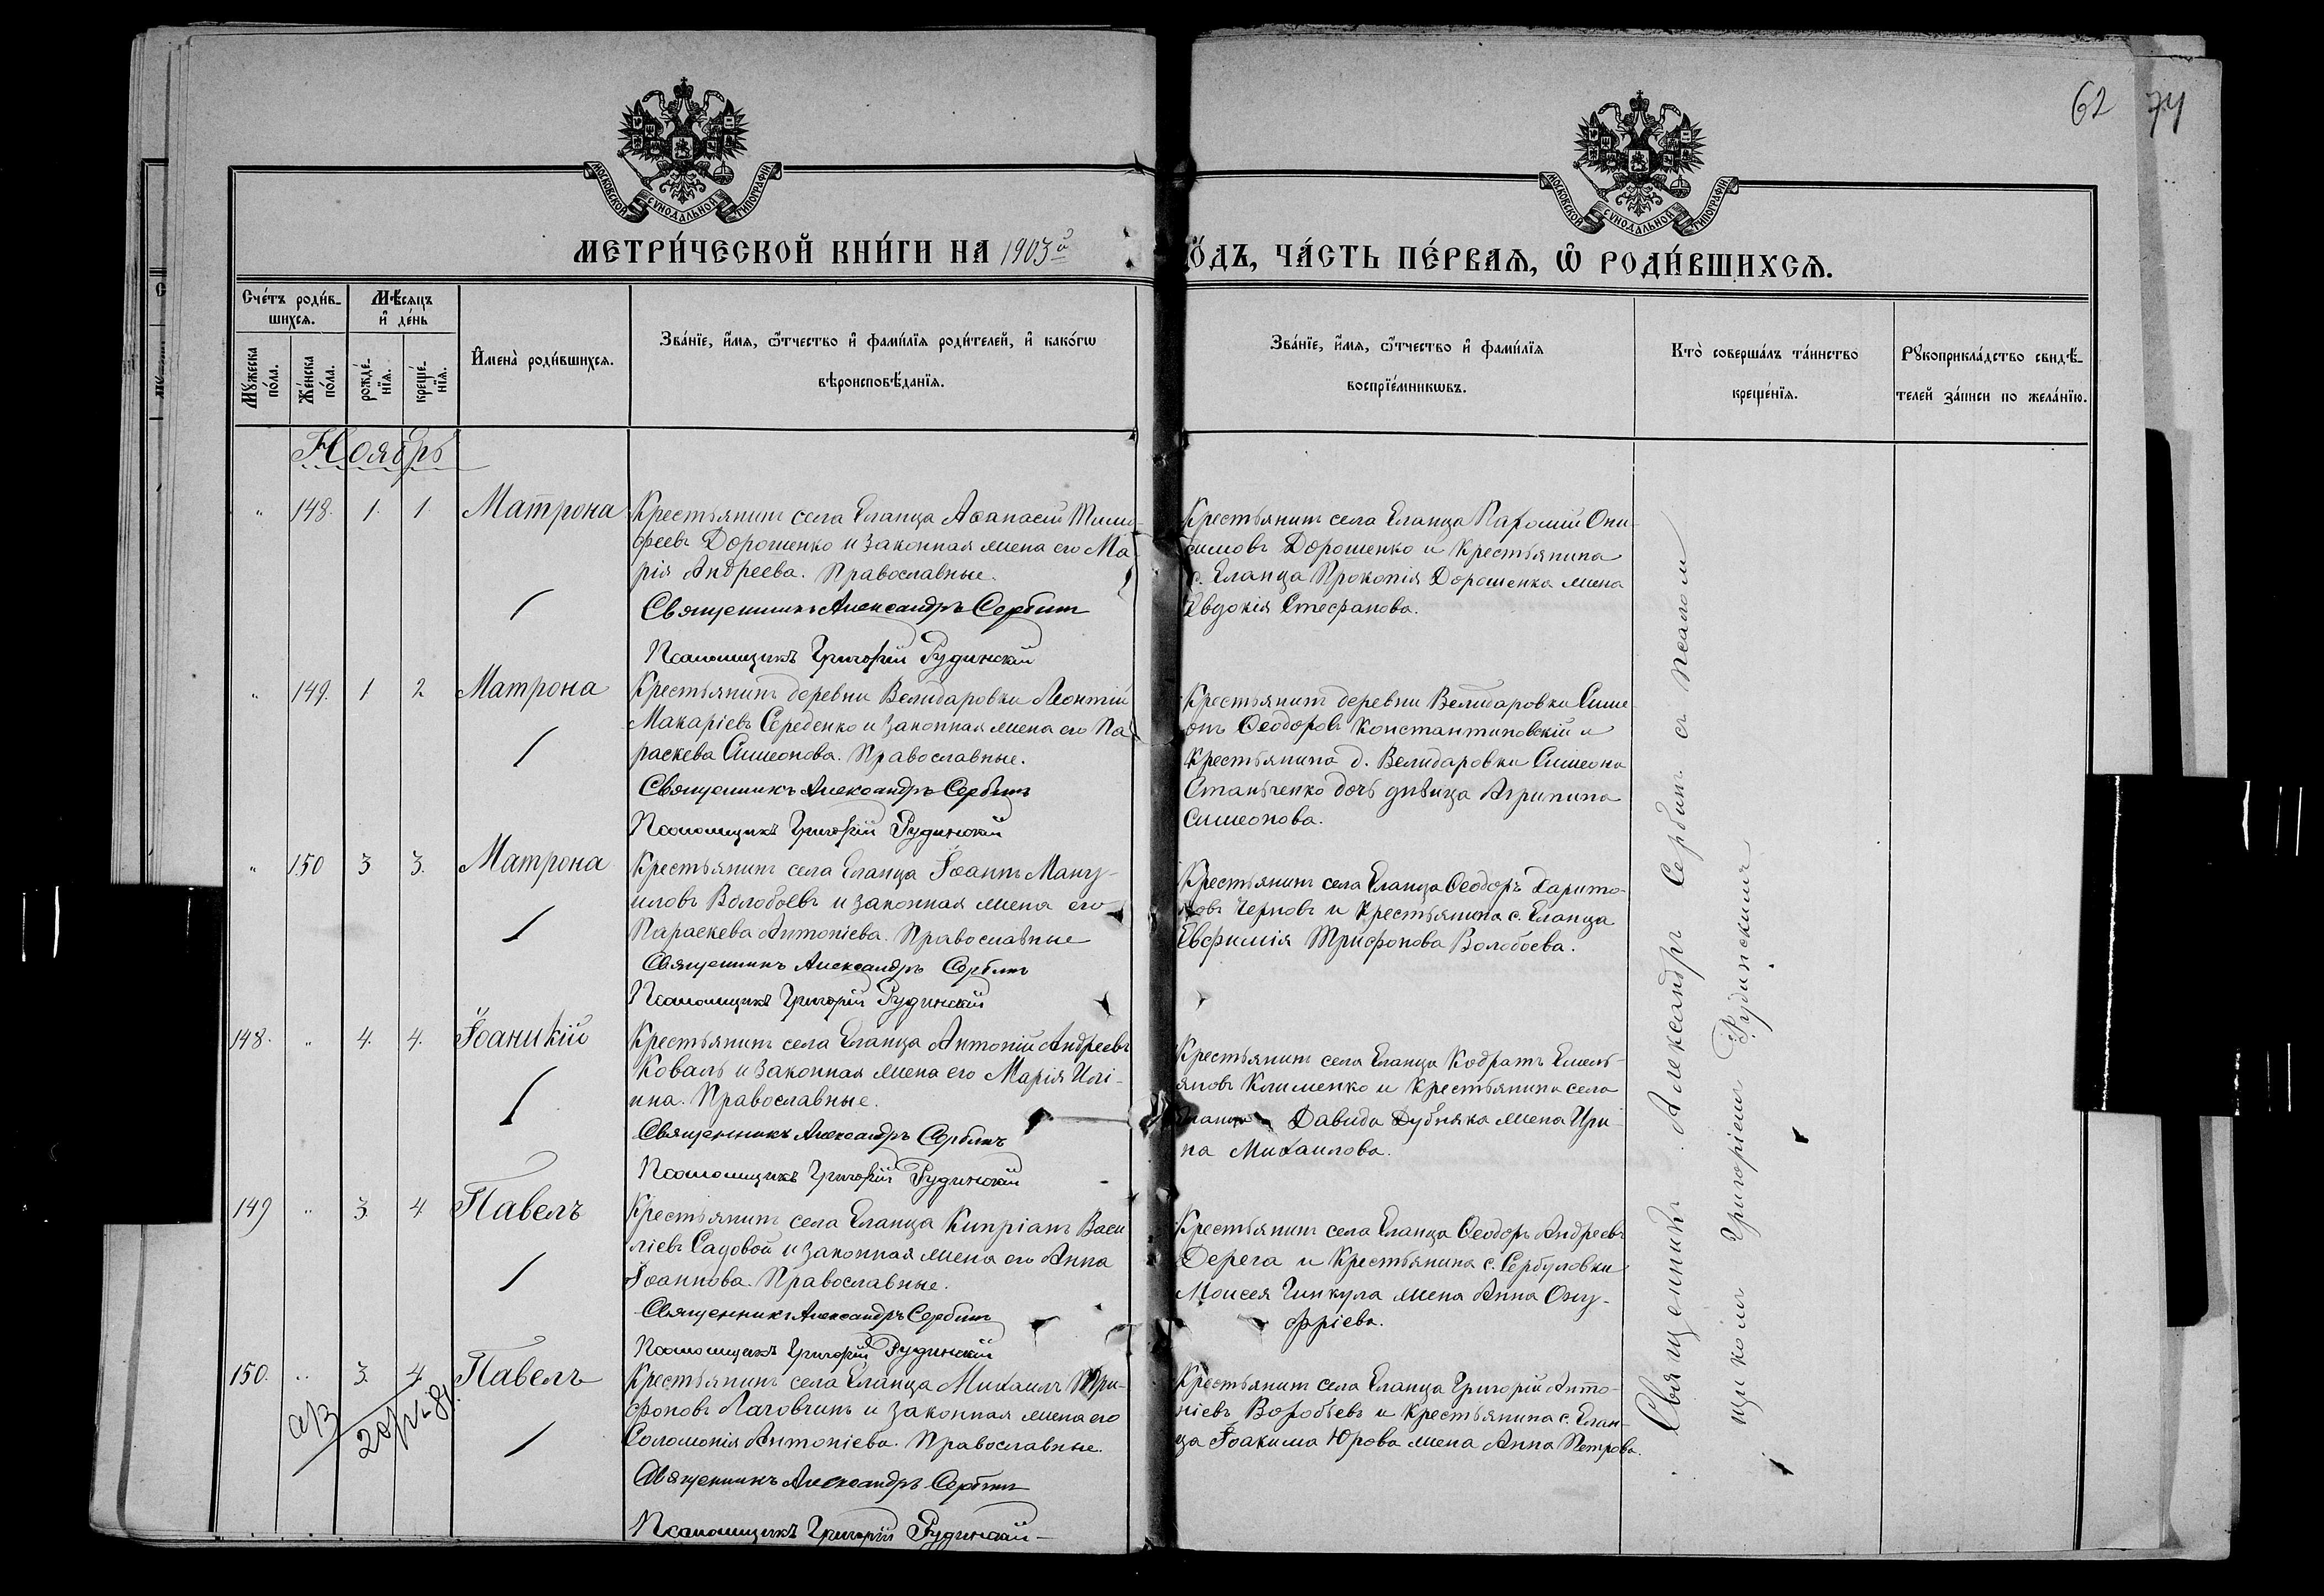 62 74
МОСКОВСКОЙ СѴНОДАЛЬНОЙ ТИПОГРАФІИ
МОСКОВСКОЙ СѴНОДАЛЬНОЙ ТИПОГРАФІИ
МЕТРИ́ЧЕСКОЙ КНИ́ГИ НА 1903й
ОДЪ, ЧА́СТЬ ПЕ́РВАѦ, Ѡ҆ РОДИ́ВШИХСѦ.
Сче́тъ роди́в-
шихсѧ.
Мѣ́сѧцъ
и҆ де́нь
Мꙋжеска
по́ла.
Же́нска
по́ла.
рожде́-
нїѧ.
креще́-
нїѧ.
И҆мена̀ роди́вшихсѧ.
Зва́нїе, и҆́мѧ, ѻ҆́тчество и҆ фами́лїѧ роди́телей, и҆ како́гѡ
вѣроисповѣ́данїѧ.
Зва́нїе, и҆́мѧ, ѻ҆́тчество и҆ фами́лїѧ
воспрїе́мникѡвъ.
Кто̀ соверша́лъ та́инство
креще́нїѧ.
Рꙋкоприкла́дство свидѣ́-
телей за́писи по жела́нїю.
Ноябрь
" 148. 1. 1. Матрона
Крестьянинъ села Еланца Аѳанасій Тимо-
феевъ Дорошенко и законная жена его Ма-
рія Андреева. Православные.
Священникъ Александръ Сербинъ
Псаломщикъ Григорій Рудинскій
Крестьянинъ села Еланца Пахомій Они-
симовъ Дорошенко и крестьянина
с. Еланца Прокопія Дорошенка жена
Евдокія Стефанова.
" 149. 1 2 Матрона
Крестьянинъ деревни Велидаровки Леонтій
Макаріевъ Середенко и законная жена его Па-
раскева Симеонова. Православные.
Священникъ Александръ Сербинъ
Псаломщикъ Григорій Рудинскій
Крестьянинъ деревни Велидаровки Симе-
онъ Ѳеодоровъ Константиновскій и
крестьянина д. Велидаровки Симеона
Станьченко дочь дѣвица Агрипина
Симеонова.
" 150 3 3. Матрона
Крестьянинъ села Еланца Іоаннъ Ману-
иловъ Волобоевъ и законная жена его
Параскева Антоніева. Православные
Священникъ Александръ Сербинъ
Псаломщикъ Григорій Рудинскій
Крестьянинъ села Еланца Ѳеодоръ Харито-
новъ Черновъ и крестьянина с. Еланца
Евфимія Трифонова Волобоева.
148. " 4. 4. Іоаникій
Крестьянинъ села Еланца Антоній Андреевъ
Коваль и законная жена его Марія Илі-
ина. Православные.
Священникъ Александръ Сербинъ
Псаломщикъ Григорій Рудинскій
Крестьянинъ села Еланца Кодратъ Емель-
яновъ Клименко и крестьянина села
Еланца Давида Дубняка жена Ири-
на Михаилова.
149 " 3. 4. Павелъ
Крестьянинъ села Еланца Кипріанъ Васи-
ліевъ Садовой и законная жена его Анна
Іоаннова. Православные.
Священникъ Александръ Сербинъ
Псаломщикъ Григорій Рудинскій
Крестьянинъ села Еланца Ѳеодоръ Андреевъ
Дерега и крестьянина с. Сербуловки
Моисея Чинкула жена Анна Ону-
фріева.
150. " 3. 4. Павелъ
Крестьянинъ села Еланца Михаилъ Три-
фоновъ Лаговчинъ и законная жена его
Соломонія Антоніева. Православные.
Священникъ Александръ Сербинъ
Псаломщикъ Григорій Рудинскій
Крестьянинъ села Еланца Григорій Анто-
ніевъ Воробьевъ и крестьянина с. Елан-
ца Іоакима Юрова жена Анна Петрова.
Священникъ Александръ Сербинъ съ псалом-
щикомъ Григоріемъ Рудинскимъ